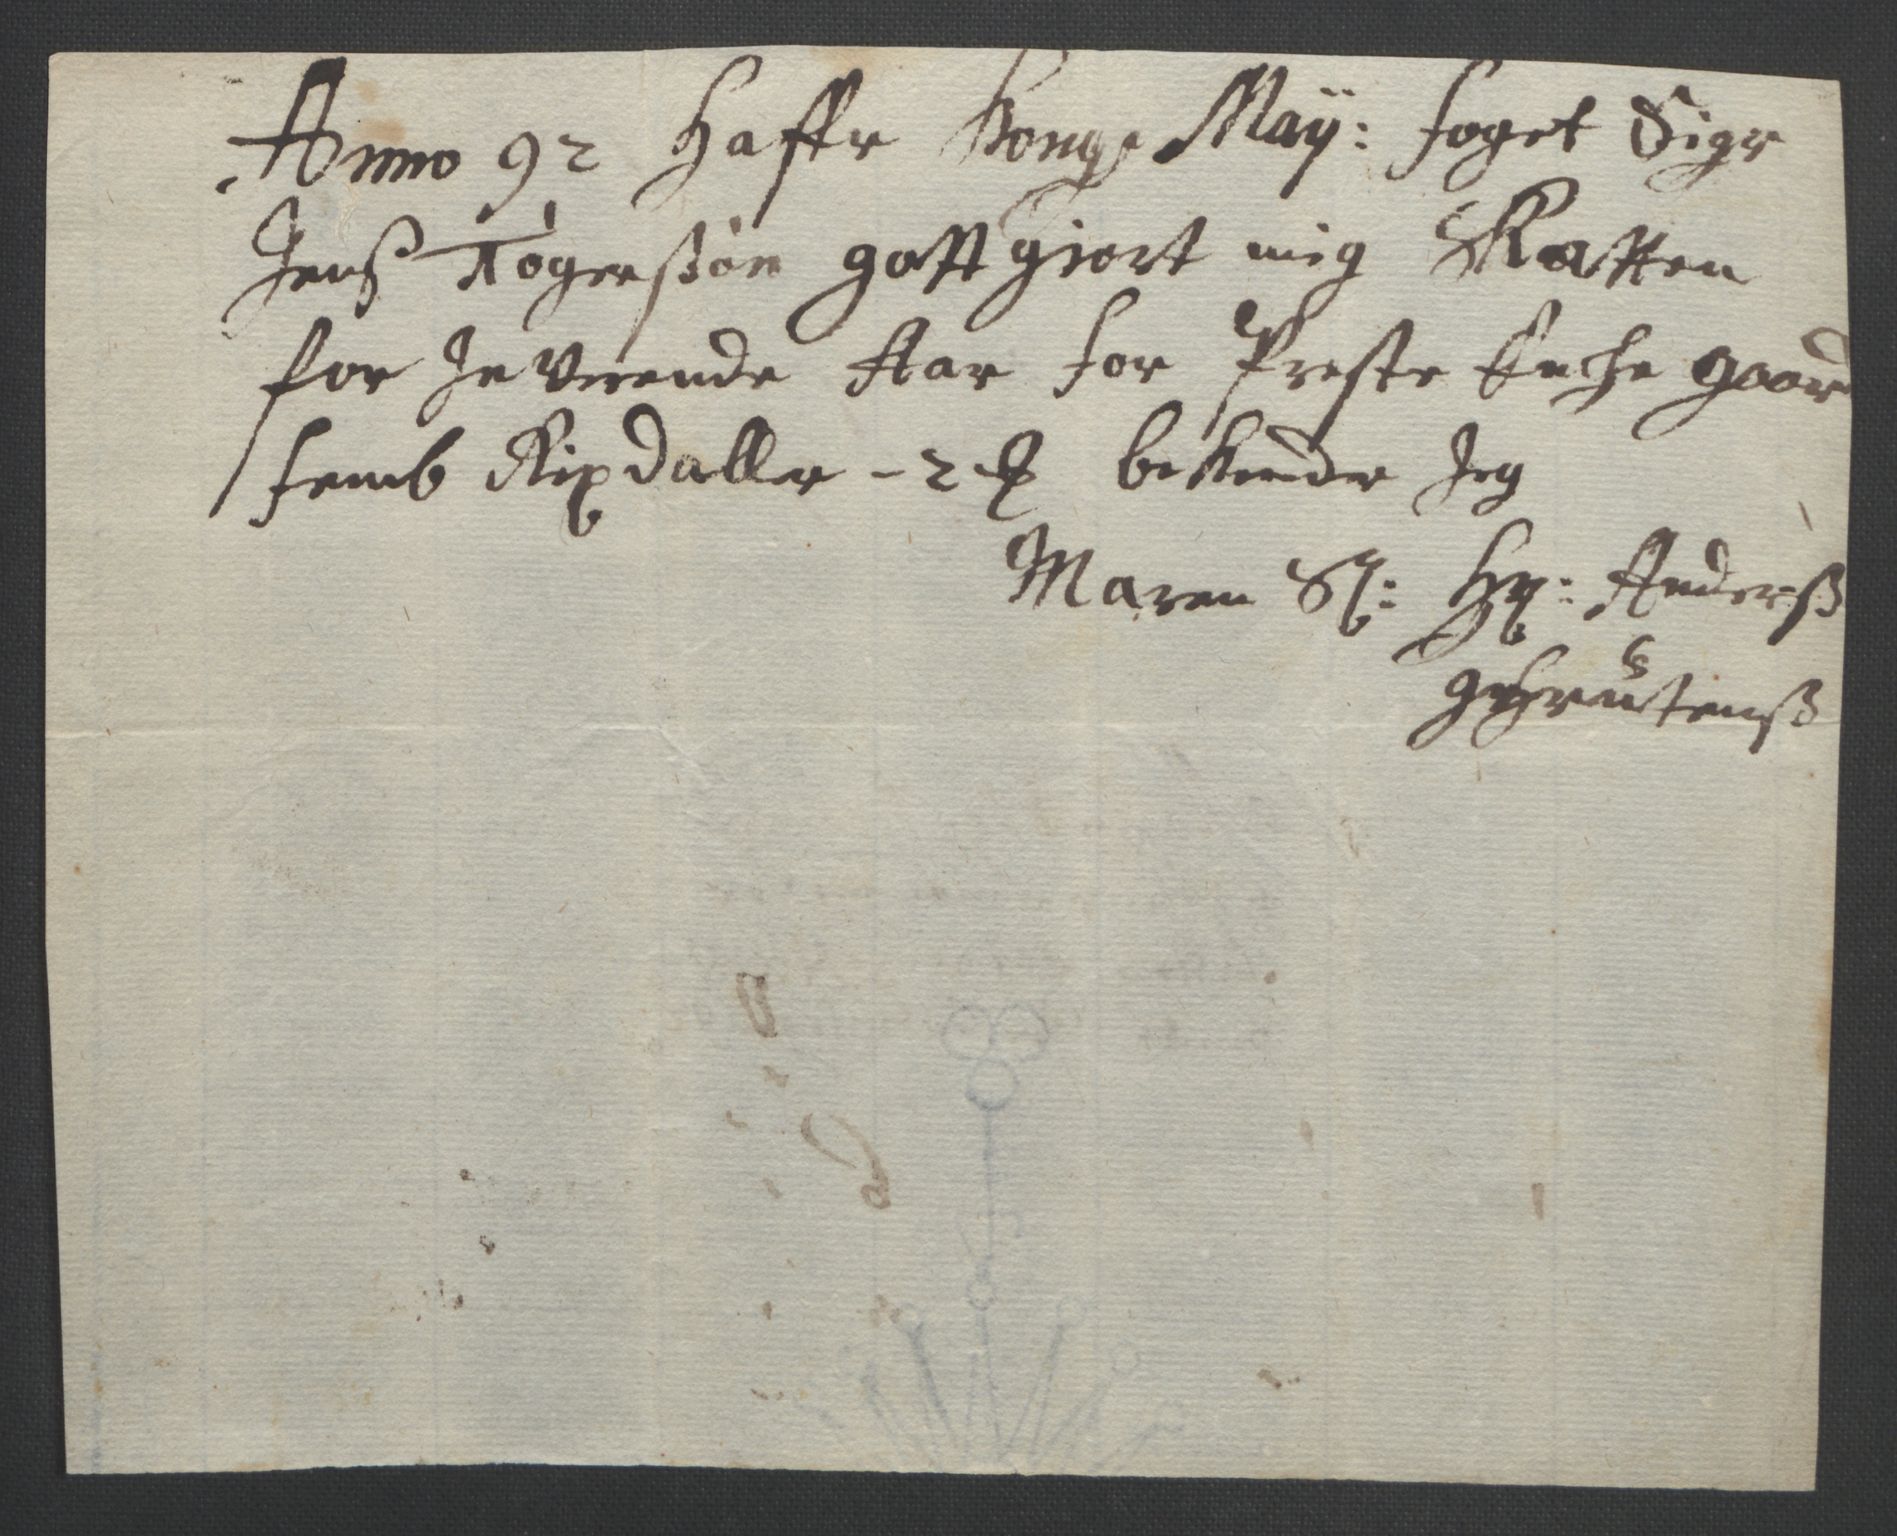 Anno 92 Hafr Kong May: foget Sigr
Jenß Rògerßòn gott giort mig Skatten
for Jnerende Aar for Preste Encke gaard
femb Rixdaller - 2 ß bekiender Jeg
Maren Sl: Hr: Anderß